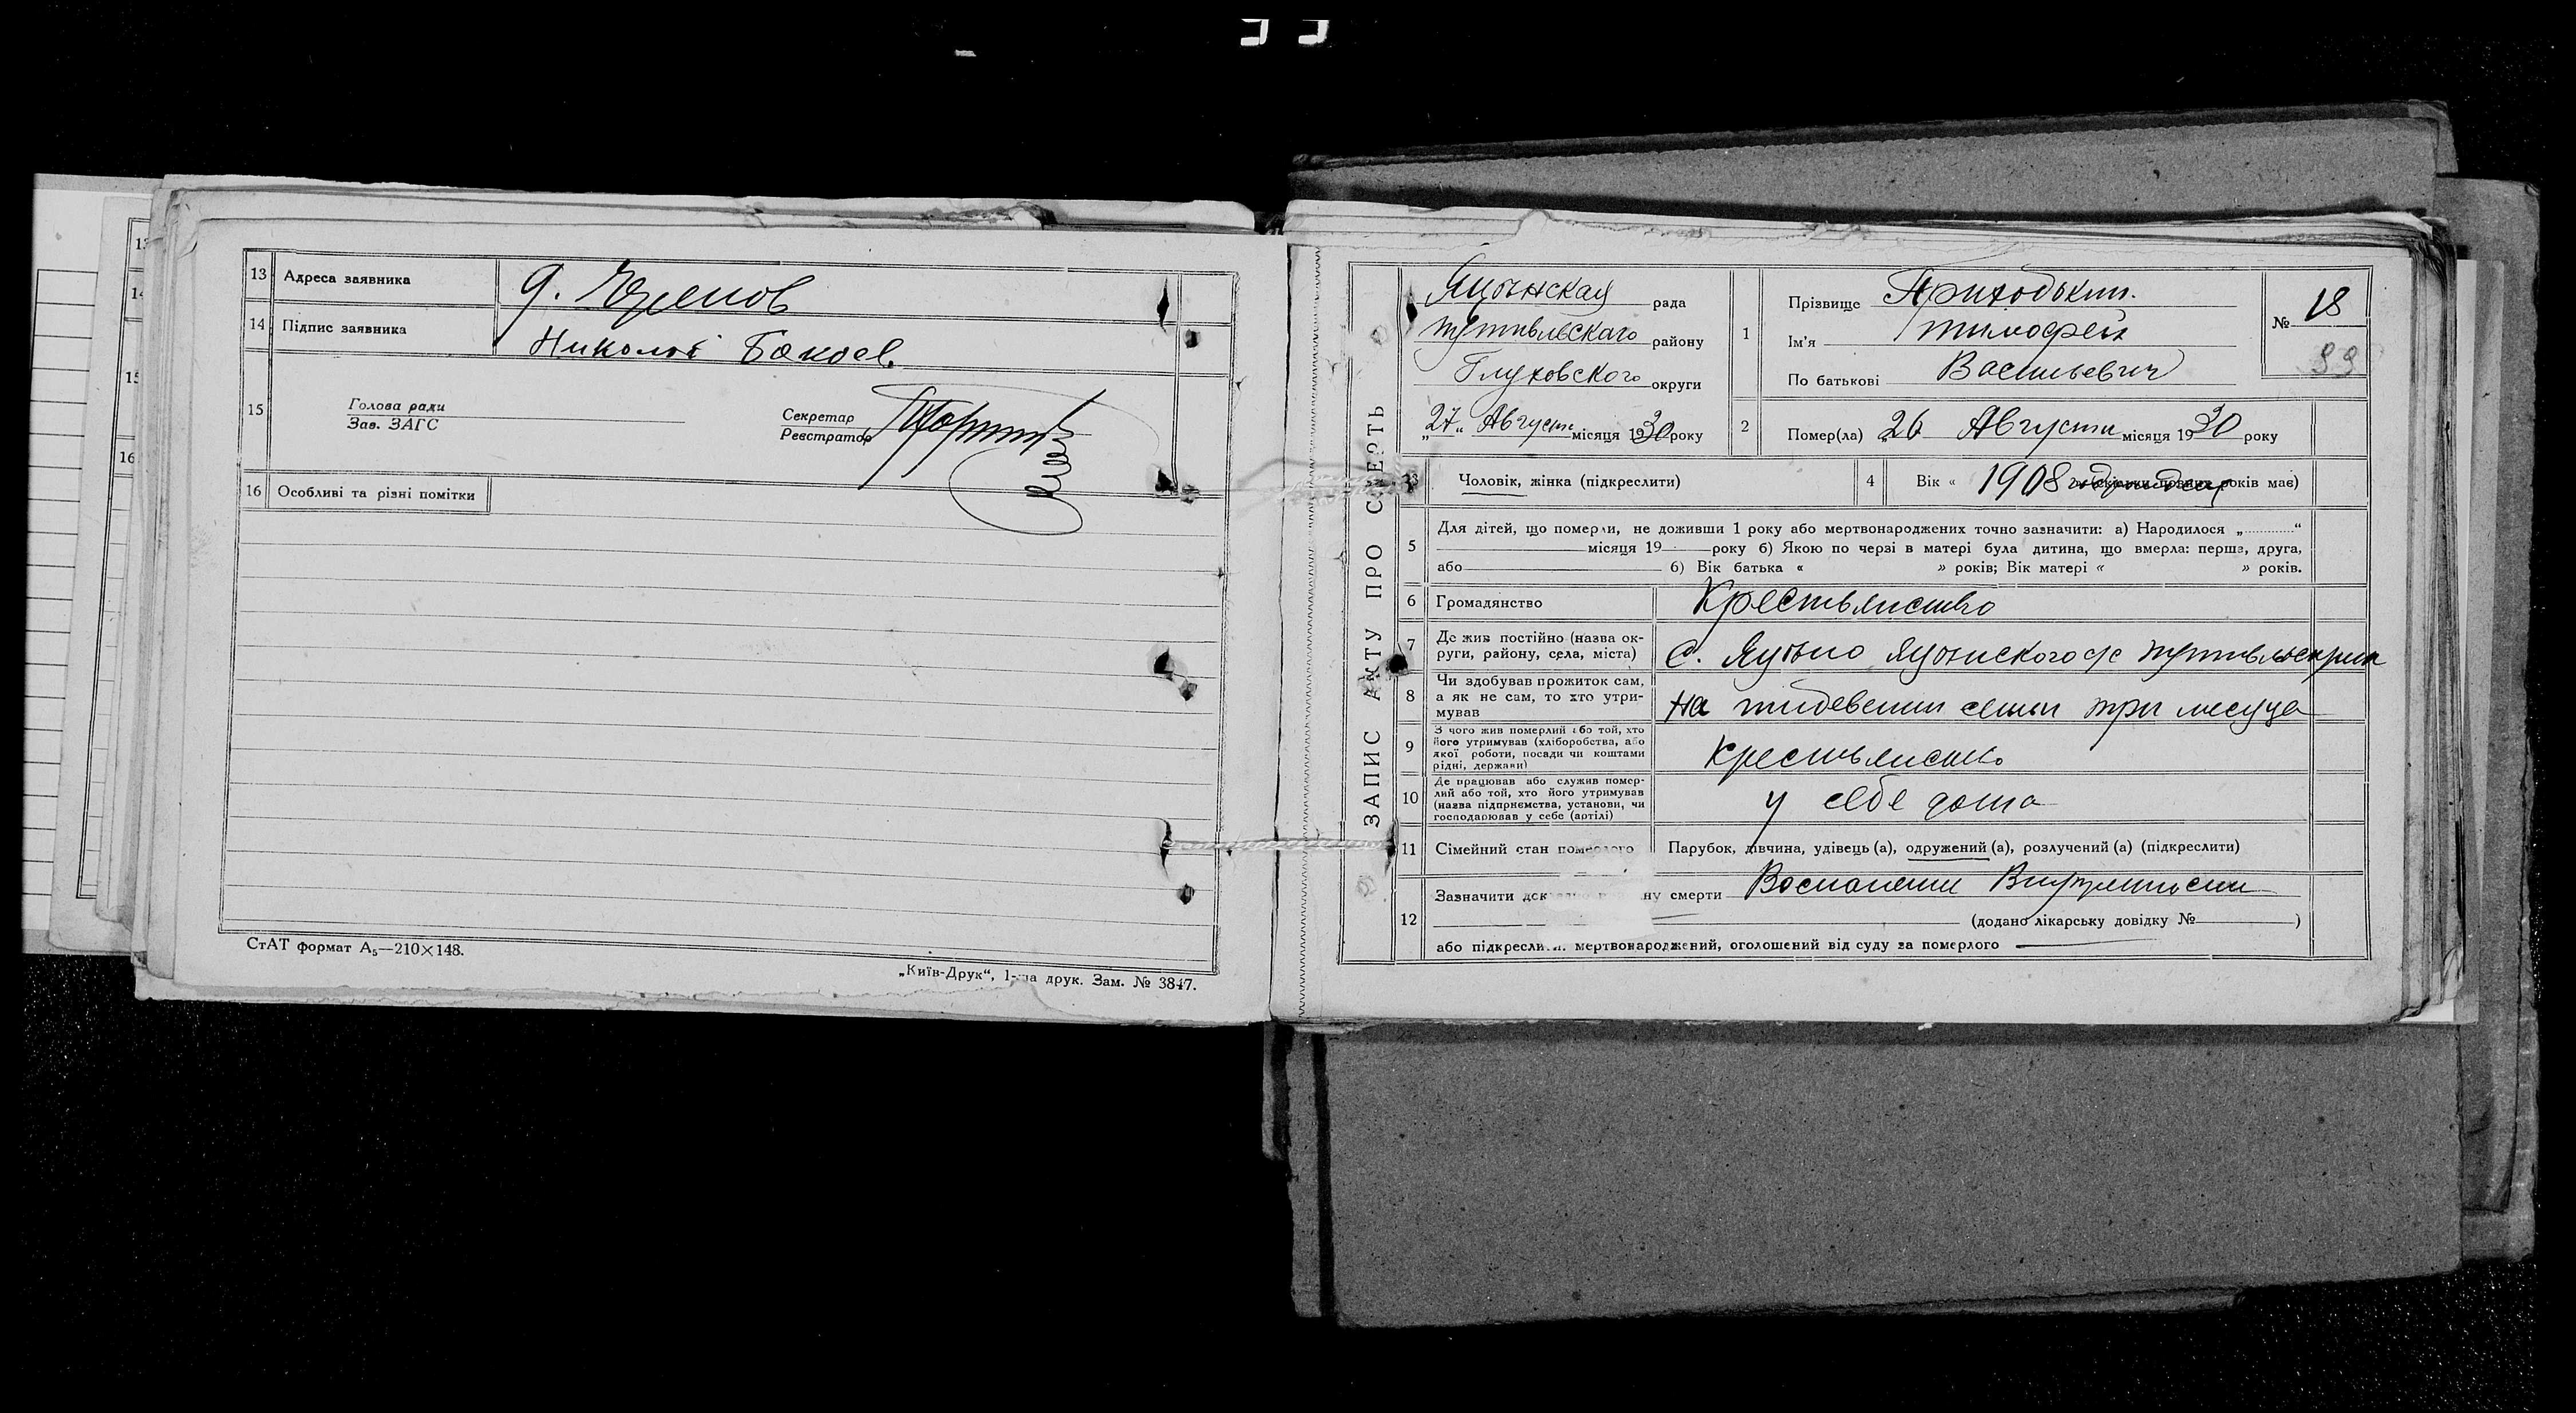 13 Адреса заявника
14 Підпис заявника Николай Бакаев
15 Голова ради
Зав. ЗАГС
Секретар
Реєстратор
16 Особливі та різні помітки
СтАТ формат А₅—210×148.
„Київ-Друк“, 1-ша друк. Зам. № 3847.
13
14
15
16
ЗАПИС АКТУ ПРО СМЕРТЬ
рада
Путивльскаго району
Глуховского округи
„27“ Августа місяця 1930 року
1 Прізвище Приходькин.
Ім'я Тимофей
По батькові Васильевич
№ 18
99
2 Помер(ла) 26 Августа місяця 1930 року
3 Чоловік, жінка (підкреслити)
4 Вік « 1908 років має)
5 Для дітей, що померли, не доживши 1 року або мертвонароджених точно зазначити: а) Народилося „ “
місяця 19 року б) Якою по черзі в матері була дитина, що вмерла: перша, друга,
або б) Вік батька « » років; Вік матері « » років.
6 Громадянство Крестьянство
7 Де жив постійно (назва ок-
руги, району, села, міста) с.
8 Чи здобував прожиток сам,
а як не сам, то хто утри-
мував
На иждевении семьи три месяца
9 З чого жив померлий або той, хто
його утримував (хліборобства, або
якої роботи, посади чи коштами
рідні, держави)
Крестьянство
10 Де працював або служив помер-
лий або той, хто його утримував
(назва підприємства, установи, чи
господарював у себе (артілі)
у себе дома
11 Сімейний стан померлого Парубок, дівчина, удівець (а), одружений (а), розлучений (а) (підкреслити)
12 Зазначити смерти Воспаление Внутренности
(додано лікарську довідку № )
або підкреслити: мертвонароджений, оголошений від суду за померлого